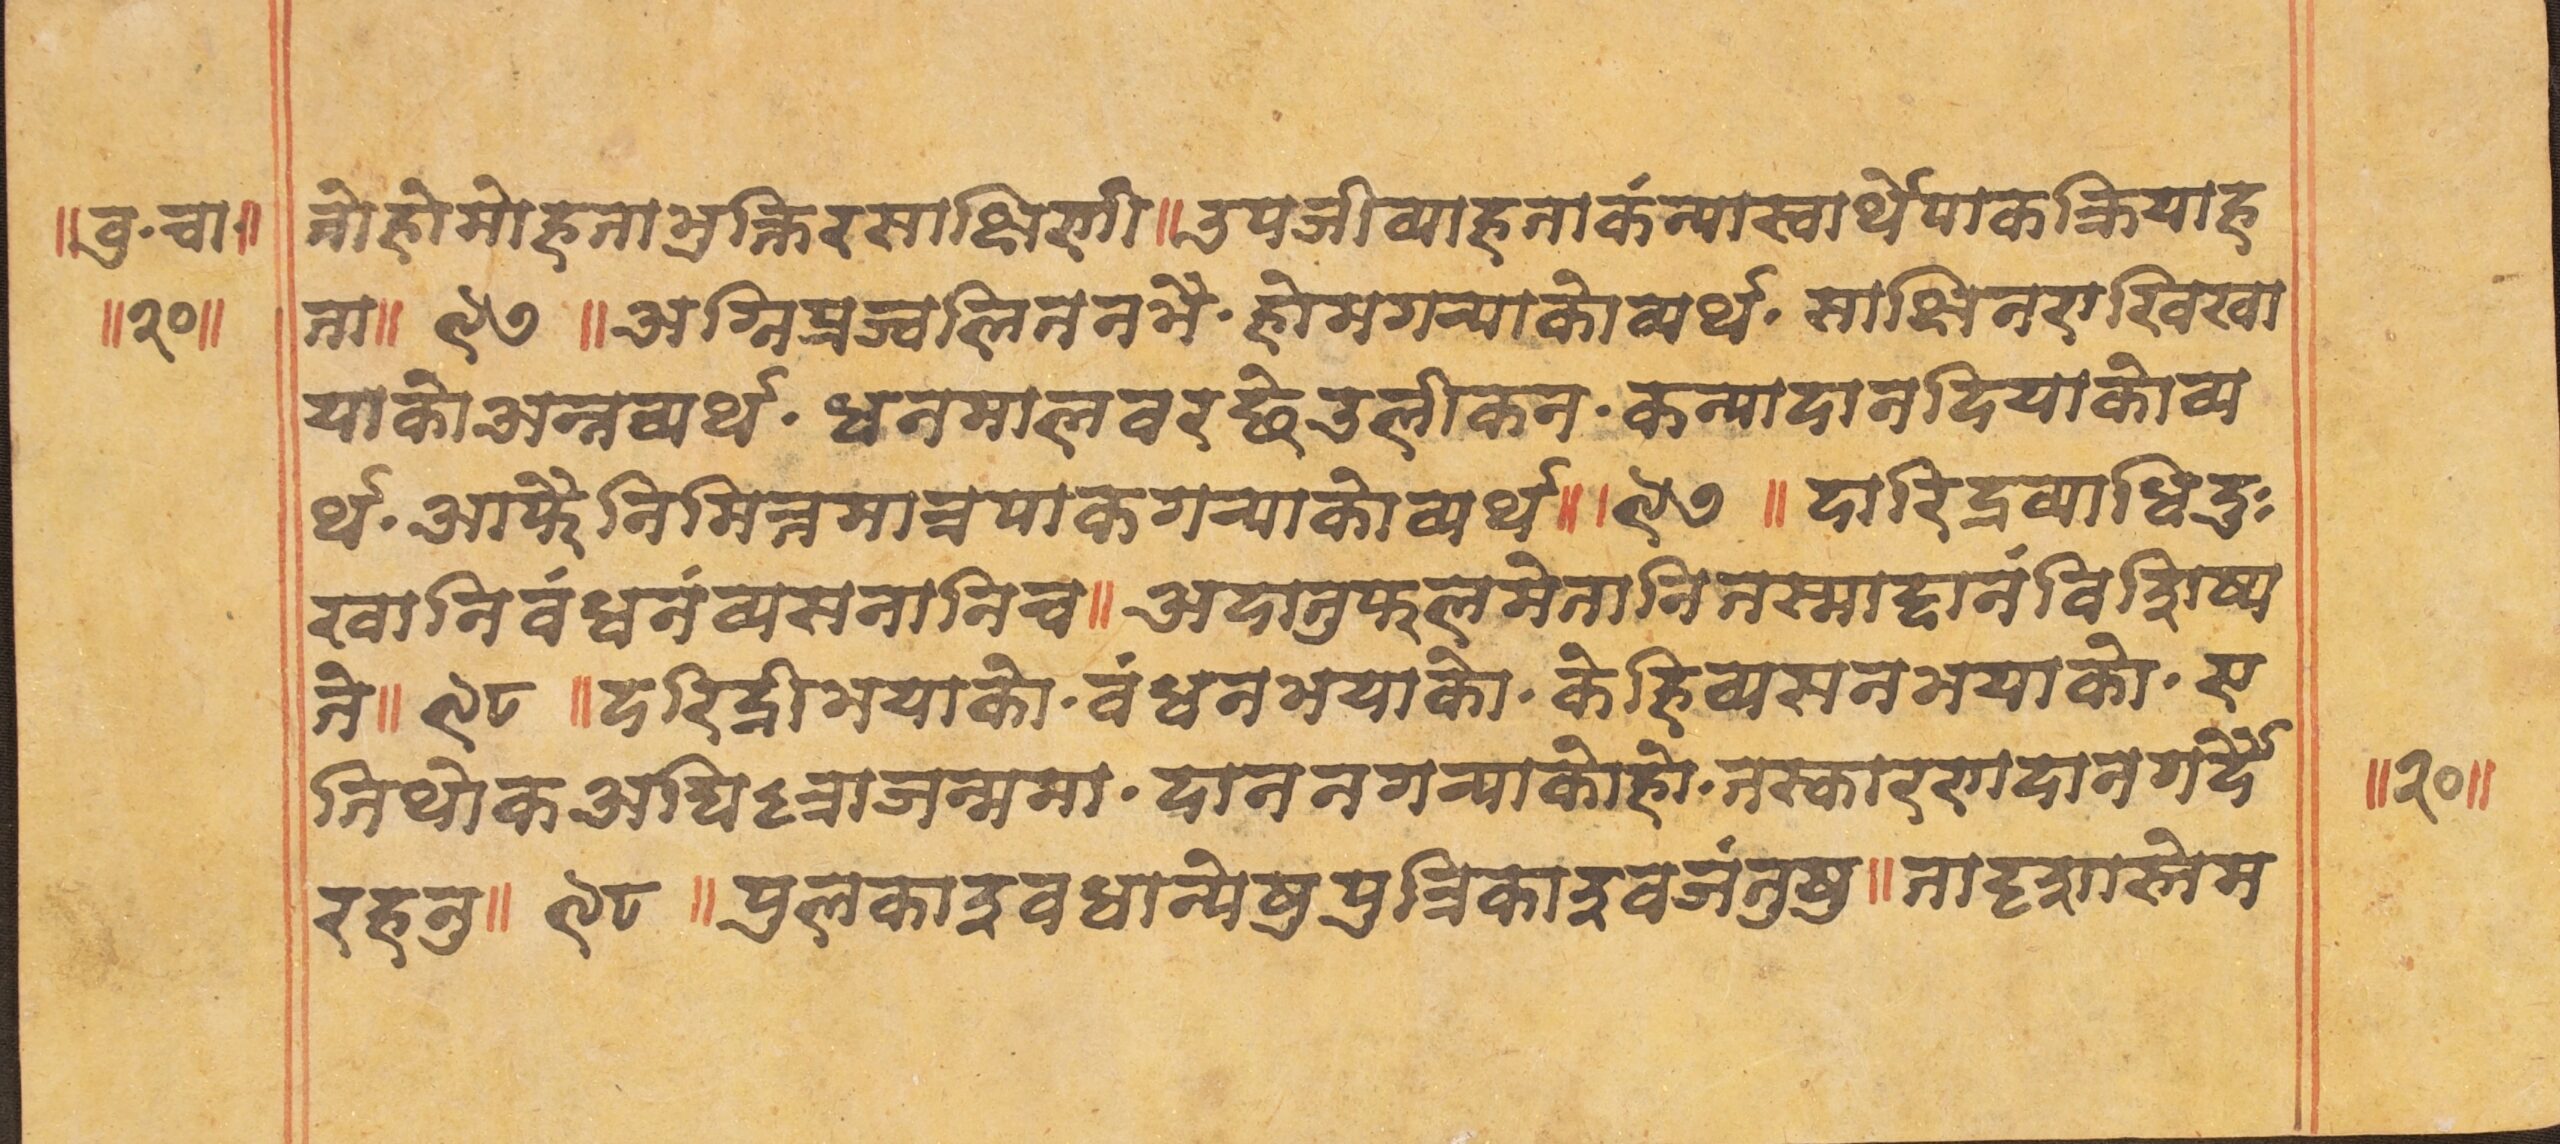 ॥वु.चा॥ तोहोमोहताभुक्तिरसाक्षिणी॥उपजीव्याहताकंन्यास्वार्थेपाकक्रियाह
॥२०॥ ता॥ ९७ ॥अग्निप्रज्वलितनभै. होमगर्‍याकोव्यर्थ. साक्षिनराखिखा
याकोअन्नव्यर्थ. धनमालवरछेउलीकन. कन्यादानदियाकोव्य
र्थ. आफैनिमित्तमात्रपाकगर्‍याकोव्यर्थ॥ ।९७ ॥ दारिद्रव्याधिदुः
खानिवंधनंव्यसनानिच॥ अदातुफलमेतानितस्माद्दानंविशिष्य
ते॥ ९८ ॥दरिद्रीभयाको. वंधनभयाको. केहिव्यसनभयाको. ए
तिथोकअघिइन्राजन्ममा. दाननगर्‍याकोहो. तस्कारणदानगर्दै ॥२०॥
रहनु॥ ९८ ॥पुलकाइवधान्येषुपुत्तिकाइवजंतुषु॥तादृशास्तेम